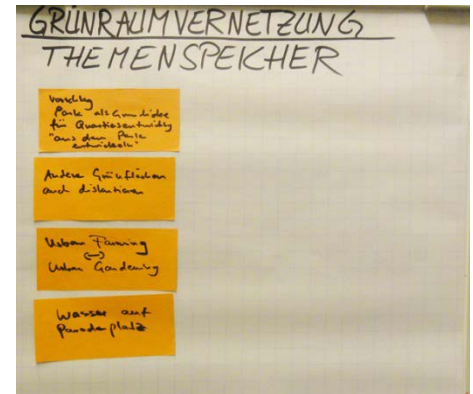 GRÜNRAUMVERNETZUNG
THEMENSPEICHER
Vorschlag
Park als Grundidee
für Quartiersentwicklg
"aus dem Park
entwickeln"
Andere Grünflächen
auch diskutieren
Urban Farming
↔
Urban Gardening
Wasser auf
Paradeplatz